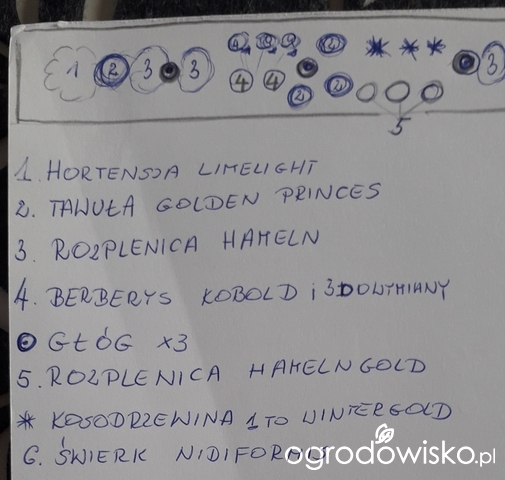 1 2 3 3 4 4 2 2 3
5
1. HORTENSJA LIMELIGHT
2. TAWUŁA GOLDEN PRINCES
3. ROZPLENICA HAMELN
4. BERBERYS KOBOLD i 3 DO WYMIANY
GŁÓG x3
5. ROZPLENICA HAMELN GOLD
* KOSODRZEWINA 1 TO WINTERGOLD
6. ŚWIERK NIDIFORMIS
ogrodowisko.pl